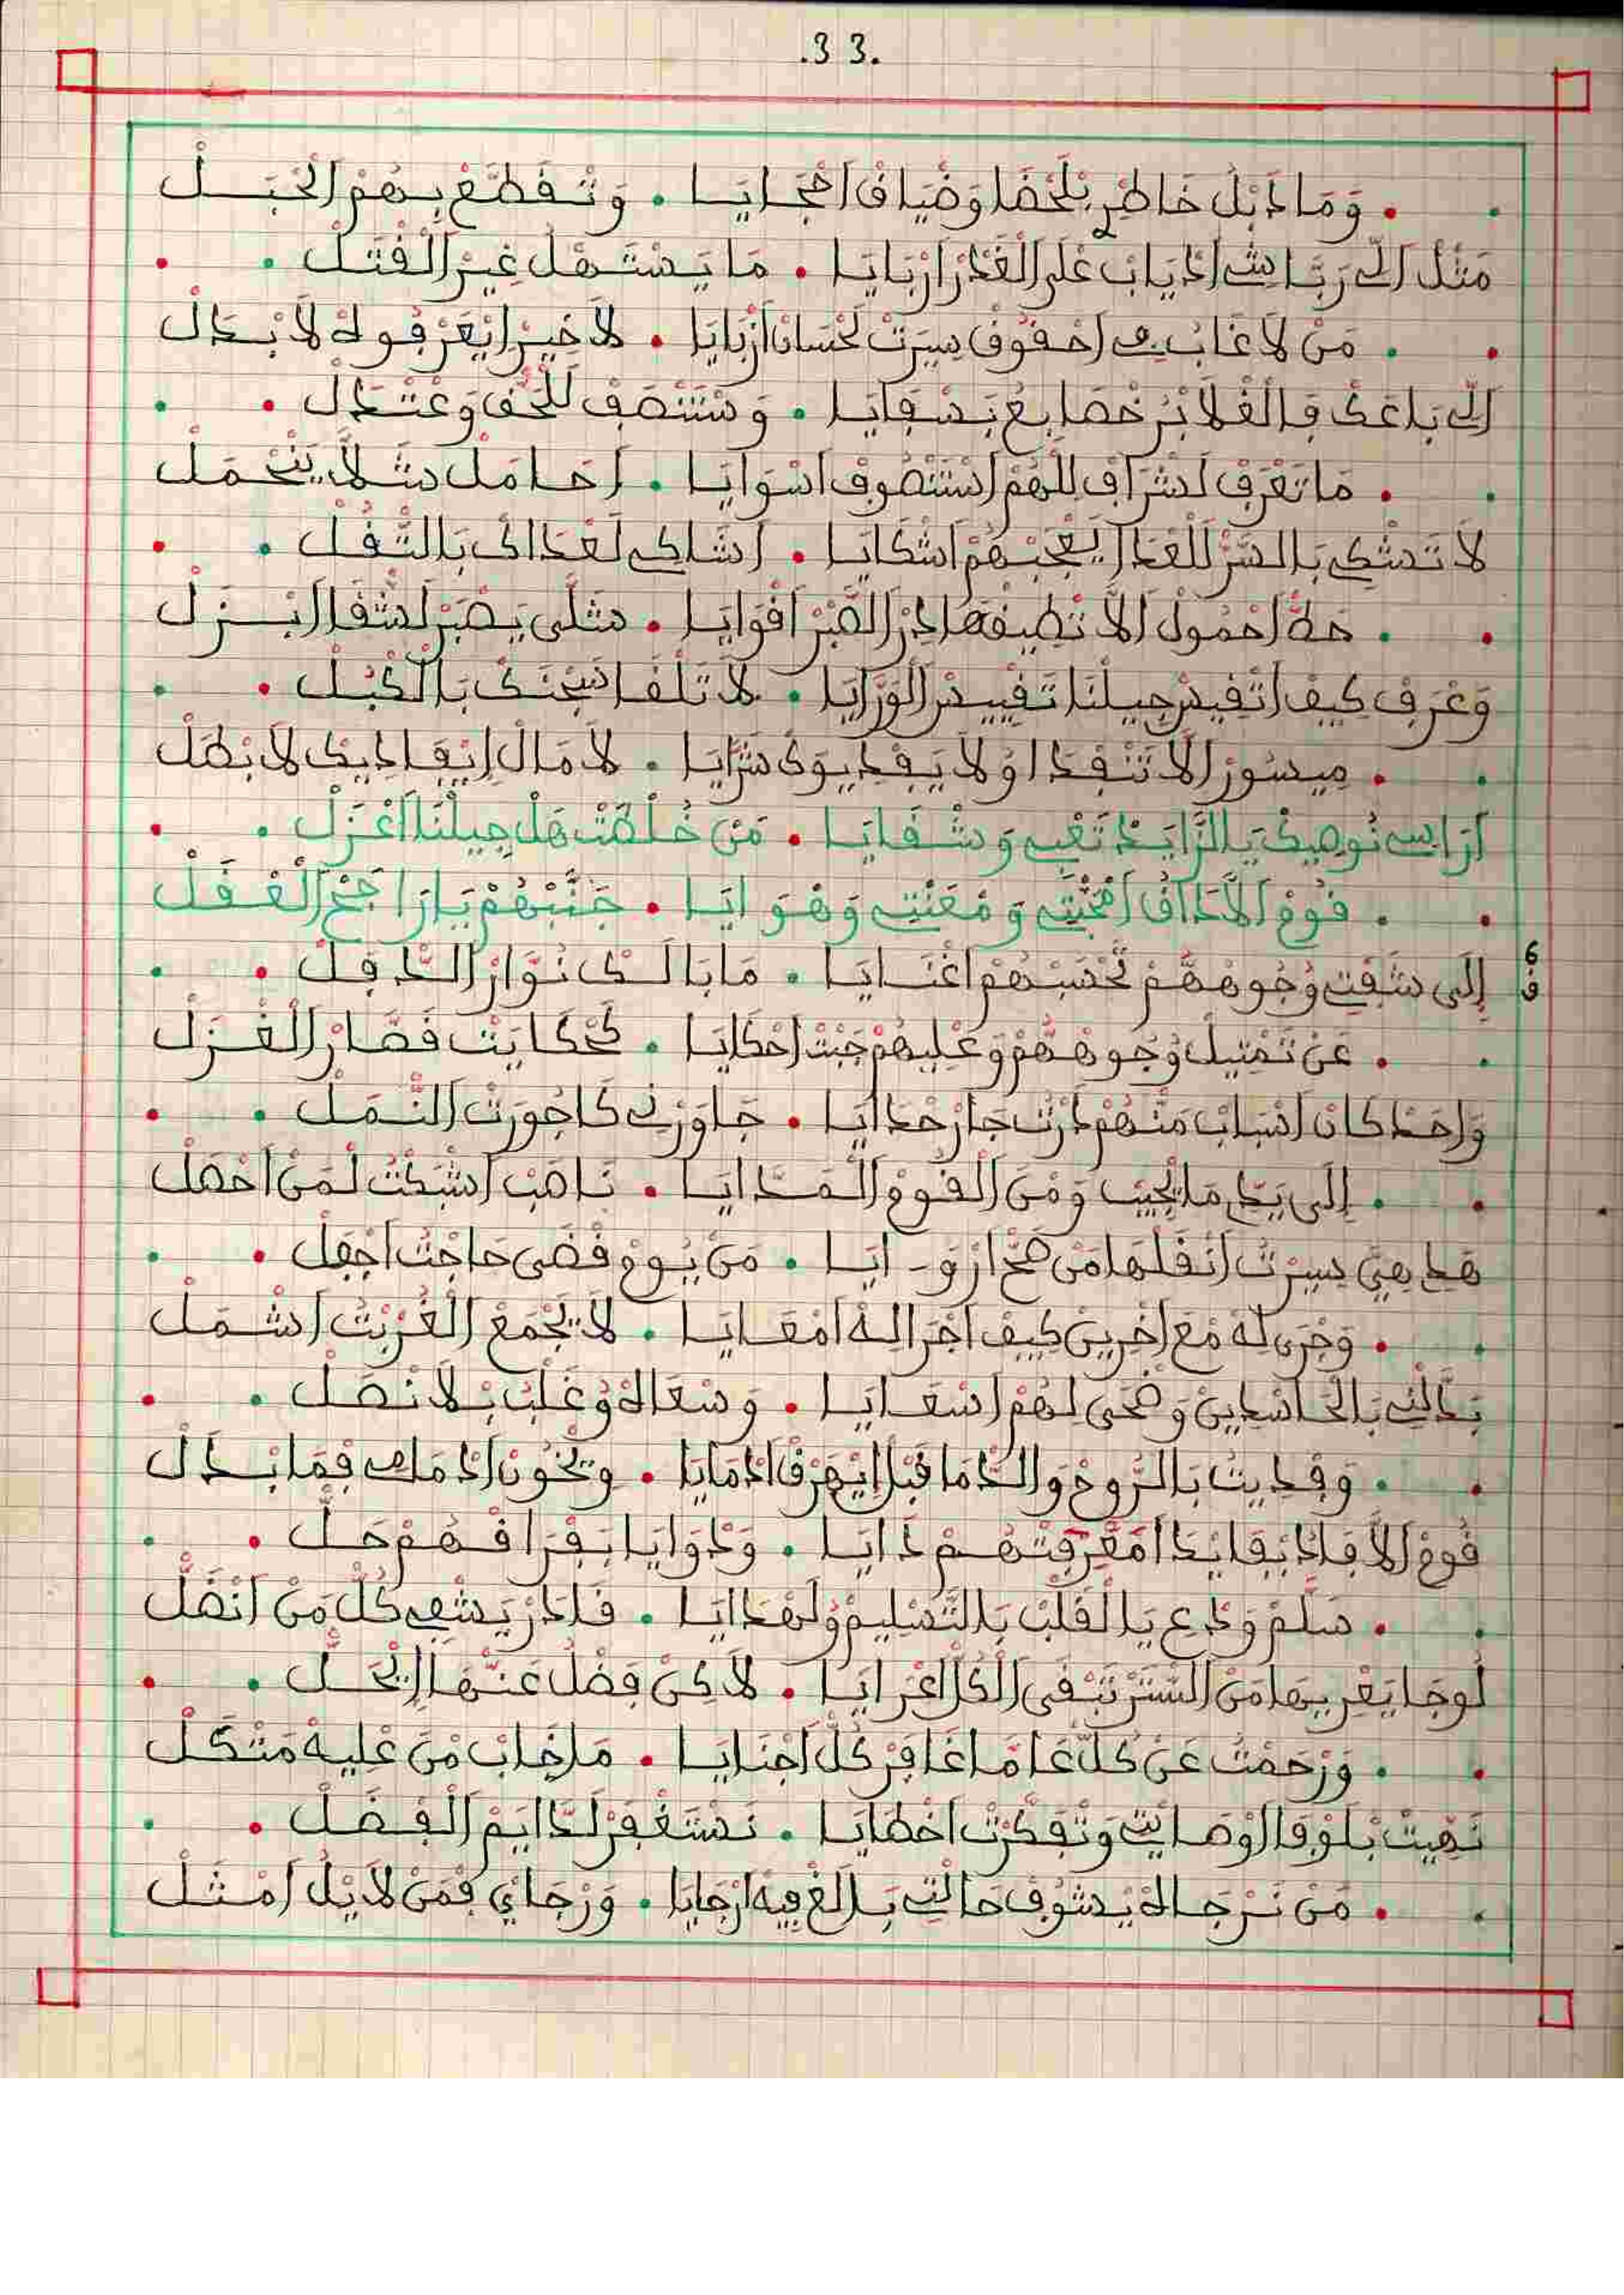 .33.
وَمَا ذَبْلُ خَاطْرِ بَلْحْفَا وَضْيَافْ اَهْجَايَا . وَتْقَطَّعْ بِهُمْ الْحْبَلْ
مَثْلْ اَلِّي رَبَّا شِي اَدْيَابْ عْلَى الْغْدَرْ اَرْبَايَا . مَا يَسْتَهْلْ غِيرْ الْقْتَلْ
مَنْ لَا غَابْ فِي اَحْقُوقْ سِيرْتْ لَحْسَانْ اَزْبَايَا . لَا خِيرْ اِيْعَرْفُو لَهْ لَا بْدَالْ
اَلِّي بَاعَكْ فَالْغْلَا بَرْخْصَ ابِيعْ بَسْفَايَا . وَسْتَنْصَفْ لَلْحَقْ وَعْتَدَلْ
مَا تَعْرَفْ اَشْرَافْ اللّهُمْ اسْتَنْصُوفْ اَسْوَايَا . اَحَامَلْ شَلَّا يَنْحْمَلْ
لَا تَشْكِي بَالسَّرْ لَلْعْدَا اِيْعَجْبْهُمْ اَشْكَايَا . اَشَاكِي لَعْدَاكْ بَالثّْقَلْ
حَطّْ اَحْمُولْ اَلَّا تْطِيقْهَا دِرْ الصّْبَرْ اَقْوَايَا . مَثْلِي يَصْبَرْ لَشْقَا اِنْزَلْ
وَعْرَفْ كِيفْ اَتْقِيسْ جِيلْنَا تَقْيِيسْ الْوْرَايَا . لَا تَلْقَا سَجْنَكْ بَالْكْبَلْ
مِيسُورْ اَلَّا تَنْفْدَا اوْ لَا يَفْدِيوَكْ شْرَايَا . لَا مَالْ اِيْفَادِيكْ لَا بْطَلْ
اَرَاسِي نُوصِيكْ يَالزَّايَدْ تَعْبِي وَشْقَايَا . مَنْ خُلْطَتْ هَلْ جِيلْنَا اَعْزَلْ
قُومْ اَلَّا دَاقُ اَمْحَبّْتِي وَمْعَنْتِي وَهْوَايَا . جَنَّبْهُمْ يَا رَاجَحْ الْعْقَلْ
ف6 إِلَى شَفْتِ وُجُوهْهُمْ تَحْسَبْهُمْ اَغْنَايَا . مَا بَالَكْ نُوَّارْ الدَّفْلْ
عَنْ تَمْثِيلْ وُجُوهْهُمْ وَعْلِيهُمْ جَبْتْ اَحْكَايَا . كَحْكَايَتْ قَصَّارْ الْغْزَلْ
وَاحَدْ كَانْ اَسْبَابْ مَنْهُمْ دَرْتْ جَارْ حْدَايَا . جَاوَرْنِي كَاجُورَتْ النّْمَلْ
إِلَى يَدِّي مَا اِيْجِيبْ وَمْنَ الْقُومْ الْمَدَّايَا . نَاصَبْ اَشْبَكْتُ لَمَنْ اَحْصَلْ
هَدِ هِيَّ سِيرْتُ اَنْقَلْهَا مَنْ صَحّْ اَرْوَـايَا . مَنْ يُومْ قْضَى حَاجْتُ اَجْفَلْ
وَجْرَى لَهْ مْعَ اَخْرِينْ كِيفْ اَجْرَالَهْ اَمْعَايَا . لَا يَجْمَعْ الْغُرْبْتُ اَشْمَلْ
بَدَّلْنِي بَالْحَاسْدِينْ وَضْحَى لَهُمْ اَسْعَايَا . وَسْعَالَهْ وُغْلَبْ بْلَا نْصَلْ
وَفْدِيتْ بَالرُّوحْ وَالدّْمَا قْبَلْ اِيْهَرْقْ اَدْمَايَا . وِيْخُونْ اَدْمَامِي فْمَا بْدَلْ
قُومْ اَلَّا فَادْ بْفَايْدَ اَمْعَرْفْتْهُمْ دَايَا . وَدْوَايَا بَفْرَاقْهُمْ حَلّْ
سَلَّمْ وَدْعِ يَا الْقَلْبْ بَالتَّسْلِيمْ وُلَهْدَايَا . قَادَرْ يَشْفِي كُلّْ مَنْ اَنْضَلّْ
لُوجَا يَعْرِيهَا مَنَ السّْتَرْ تَبْقَى الْكُلّْ اَعْرَايَا . لَاكِنْ فَضْلُ عَنْهَا اِيْحَلّْ
وَرْحَمْتُ عَنْ كُلّْ عَامَّا غَافَرْ كُلّْ اَجْنَايَا . مَا خَابْ مْنْ عْلِيهْ مَتْكَلْ
نَهِّيتْ بْلَوْفَا الْوْصَايْتِي وَتْفَكَّرْتْ اَخْطَايَا . نَسْتَغْفَرْ لَدَّايَمْ الْفْضَلْ
مَنْ نَرْجَالَهْ يْشُوفْ حَالْتِي بَـالَغْ فِيهْ اَرْجَايَا . وَرْجَايْ فْمَنْ لَا يْلُ اَمْثَلْ